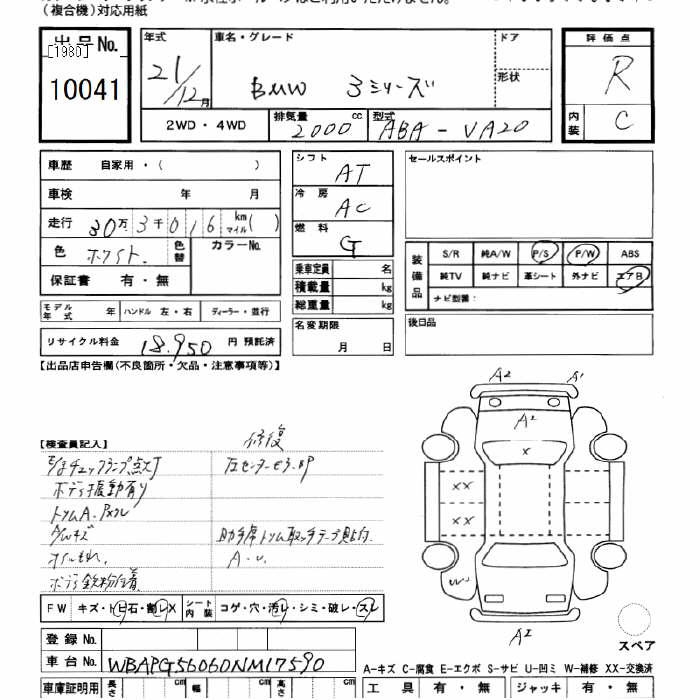 (複合機)対応用紙
出品No.
[1980]
10041
年式 21/12月
車名・グレード BMW 3シリーズ
ドア
形状
2WD・4WD
排気量 2000 cc
型式 ABA-VA20
評価点 R
内装 C
車歴 自家用・( )
車検 年 月
走行 30万3千016 km マイル( )
色 ホワイト 色替 カラーNo.
保証書 有・無
モデル年式 年 ハンドル 左・右 ディーラー・並行
リサイクル料金 18,950 円 預託済
シフト AT
冷房 AC
燃料 G
乗車定員 名
積載量 kg
総重量 kg
名変期限 月 日
セールスポイント
装備品
S/R 純A/W P/S P/W ABS
純TV 純ナビ 革シート 外ナビ エアB
ナビ型番:
後日品
【出品店申告欄(不良箇所・欠品・注意事項等)】
【検査員記入】
修復
チェックランプ点灯
ボディ振動有り
トリムA.
オイルもれ
ボディ鉄粉付着
助手席トリム取ッテテープ貼付
A.U.
A2 A1
A2
X
XX
XX
W
A2
FW キズ・トビ石・割レX シート内装 コゲ・穴・汚レ・シミ・破レ・スレ
スペア
登録No.
車台No. WBAPG56060NM17590
A-キズ C-腐食 E-エクボ S-サビ U-凹ミ W-補修 XX-交換済
車庫証明用 長さ cm 幅 cm 高さ cm
工具 有・無 ジャッキ 有・無